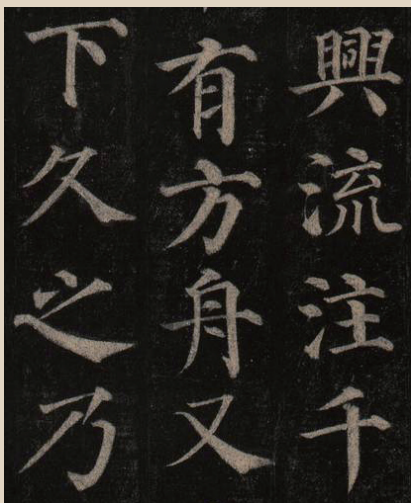 興流注千
有方舟又
下久之乃